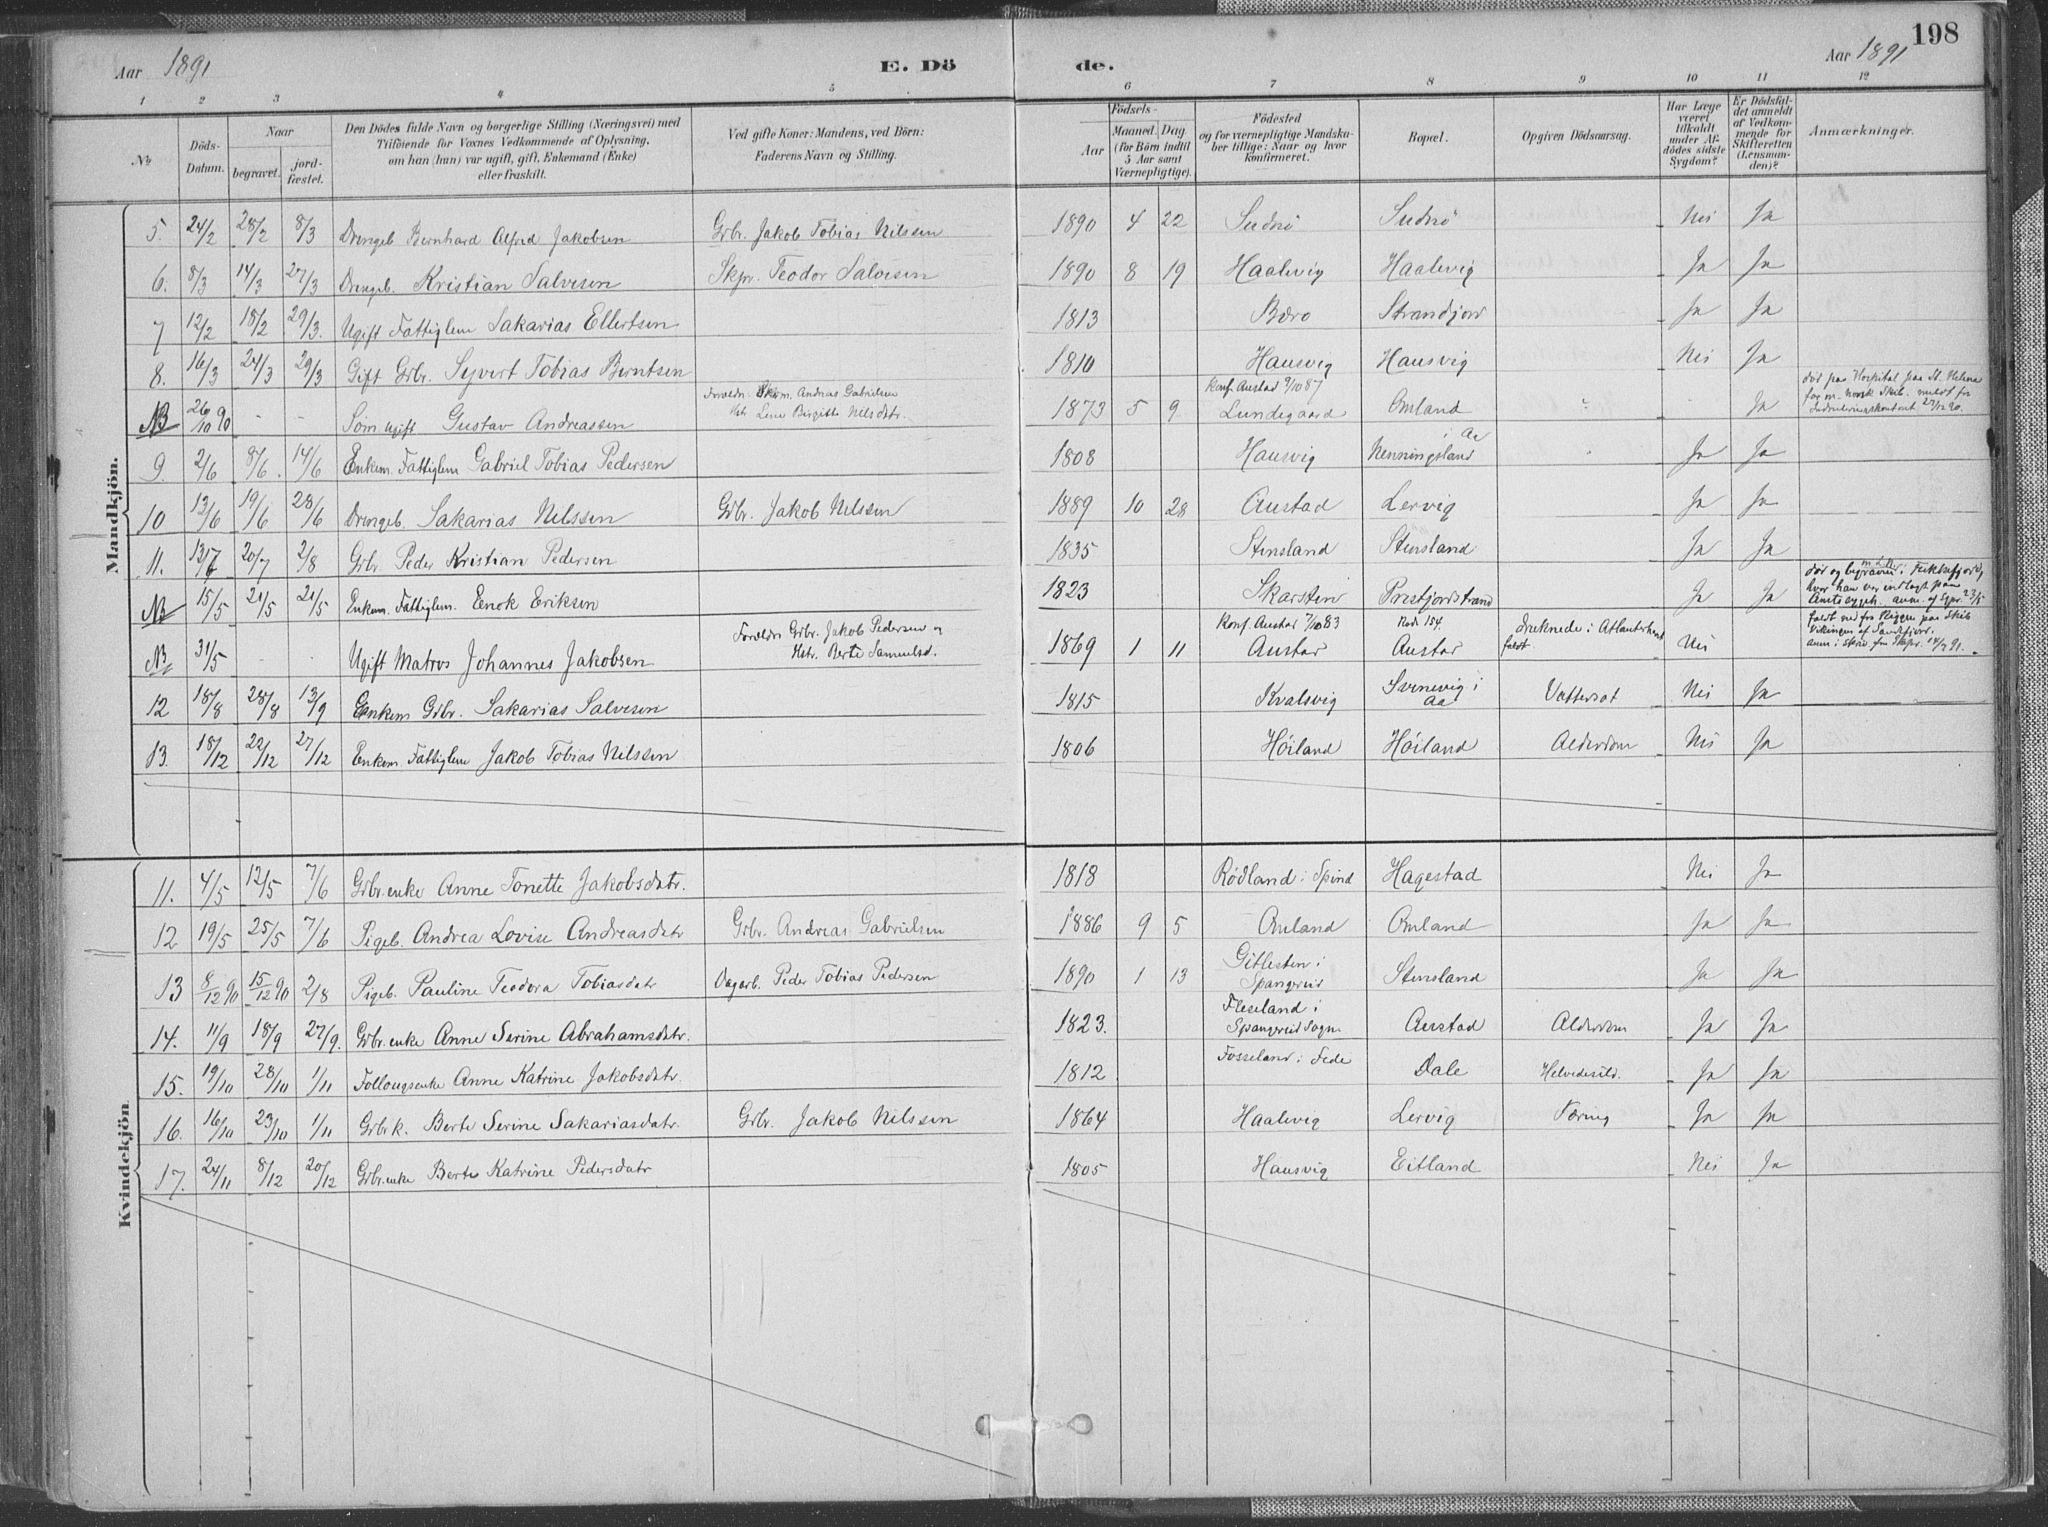 198
Aar 1891 E. Dö de. Aar 1891
1 2 3 4 5 6 7 8 9 10 11 12
No. Döds-Datum. Naar begravet. jordfæstet. Den Dödes fulde Navn og borgerlige Stilling (Næringsvei) med Tilföiende for Voxnes Vedkommende af Oplysning, om han (hun) var ugift, gift, Enkemand (Enke) eller fraskilt. Ved gifte Koner: Mandens, ved Börn: Faderens Navn og Stilling. Födsels- Aar Maaned. Dag. (for Börn indtil 5 Aar samt Værnepligtige). Födested og for værnepligtige Mandskaber tillige: Naar og hvor konfirmeret. Bopæl. Opgiven Dödsaarsag. Har Læge været tilkaldt under Afdödes sidste Sygdom? Er Dödsfaldet anmeldt af Vedkommende for Skifteretten (Lensmanden)? Anmærkninger.
Mandkjön.
5. 24/2 28/2 8/3 Drengeb. Bernhard Alfred Jakobsen Grbr. Jakob Tobias Nilssen 1890 4 22 Sudnø Sudnø Nei Ja
6. 8/3 14/3 27/3 Drengeb. Kristian Salvesen Skpr. Teodor Salvesen 1890 8 19 Haalevig Haalevig Ja Ja
7 12/2 18/2 29/3. Ugift Fattiglem Sakarias Ellertsen 1813 Bero Strandjor Ja Ja
8. 16/3 24/3 29/3 Gift Grbr. Syvert Tobias Berntsen 1810 Hausvig Hausvig Nei Ja
NB 26/10 90 - - Søm. ugift Gustav Andreassen Forældr. Skm. Andreas Gabrielsen Hstr. Lene Birgitte Nilsdatr. 1873 5 9 Konf. Austad 9/10 87 Lundegaard Omland Ja død paa Hospital paa St. Helena for m. norsk Skib. meldt fra 27/12 90.
9. 2/6 8/6. 14/6 Enkem. Fattiglem Gabriel Tobias Pedersen 1808 Hausvig Nenningsland i Aa Ja Ja
10 13/6 19/6 28/6 Drengeb. Sakarias Nilssen Grbr. Jakob Nilssen 1889 10 28 Austad Lervig Ja Ja
11. 13/7 20/7 2/8 Grbr. Peder Kristian Pedersen 1835 Stensland Stensland Ja Ja
NB 15/5 21/5 21/5 Enkem. Fattiglem. Enok Eriksen 1823 Skarsten Prestjordstrand Ja Ja død og begravet i hvor han var indlagt paa Amtssygeh. anm. af Spr. 23/5
NB 31/5 - - Ugift Matros Johannes Jakobsen Forældr. Grbr. Jakob Pedersen og Hstr. Berte Samuelsd. 1869 1 11 Konf. Austad 7/10 83 Austad Rode 154. Austad druknede i Atlanterhavet faldt Nei faldt ned fra Riggen paa Skib Vikingen af Sandefjord. anm. i skriv. fra Skpr. 14/7 91.
12 18/8 28/8 13/9 Enkem Grbr. Sakarias Salvesen 1815 Kvalsvig Svenevig i Aa Vattersot Nei Ja
13. 18/12 22/12 27/12 Enkem. Fattiglem Jakob Tobias Nilssen 1806 Høiland Høiland Alderdom Nei Ja
Kvindekjön.
11. 4/5 12/5 7/6 Grbr.enke Anne Tonette Jakobsdatr. 1818 Rødland i Spind Hagestad Nei Ja
12 19/5 25/5 7/6 Pigeb. Andrea Lovise Andreasdatr Grbr. Andreas Gabrielsen 1886 9 5 Omland Omland Ja Ja
13 8/12 90 15/12 90 2/8 Pigeb. Pauline Teodora Tobiasdatr Dagarb. Peder Tobias Pedersen 1890 1 13 Gitlesten i Spangereid Stensland Ja Ja
14. 11/9 18/9 27/9. Grbr.enke Anne Serine Abrahamsdatr. 1823. Fleseland i Spangereid Sogn Austad Alderdom Ja Ja
15. 19/10 28/10 1/11 Follougsenke Anne Katrine Jakobsdatr. 1812 Fosseland i Fede Dale Helvedesild. Ja Ja
16. 16/10 23/10 1/11 Grbr.k. Berte Serine Sakariasdatr. Grbr. Jakob Nilssen 1864 Haalevig Lervig Tæring Ja Ja
17. 24/11 8/12 20/12 Grbr.enke Berte Katrine Pedersdatr 1805 Hausvig Eitland Nei Ja